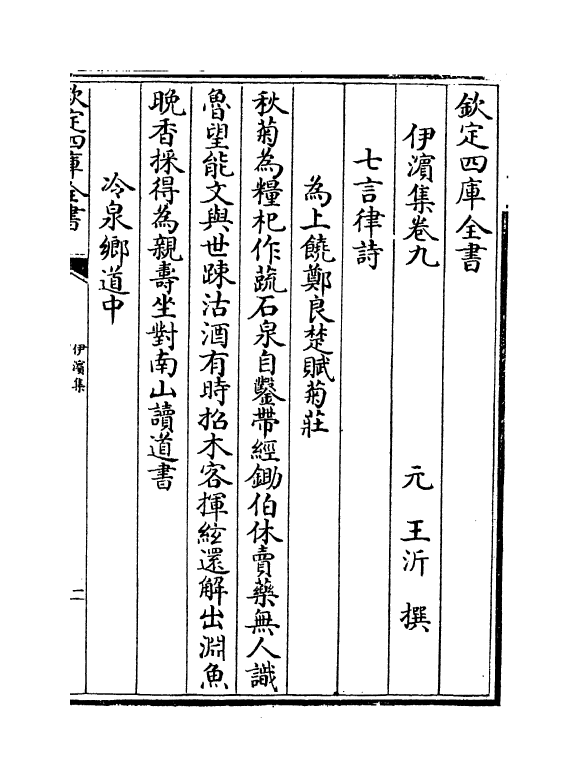 欽定四庫全書
伊濵集卷九
元 王沂 撰
七言律詩
為上饒鄭良楚賦菊莊
秋菊為糧杞作蔬石泉自鑿帶經鋤伯休賣藥無人識
魯望能文與世踈沽酒有時招木客揮絃還解出淵魚
晚香採得為親壽坐對南山讀道書
冷泉鄉道中
欽定四庫全書
伊濵集